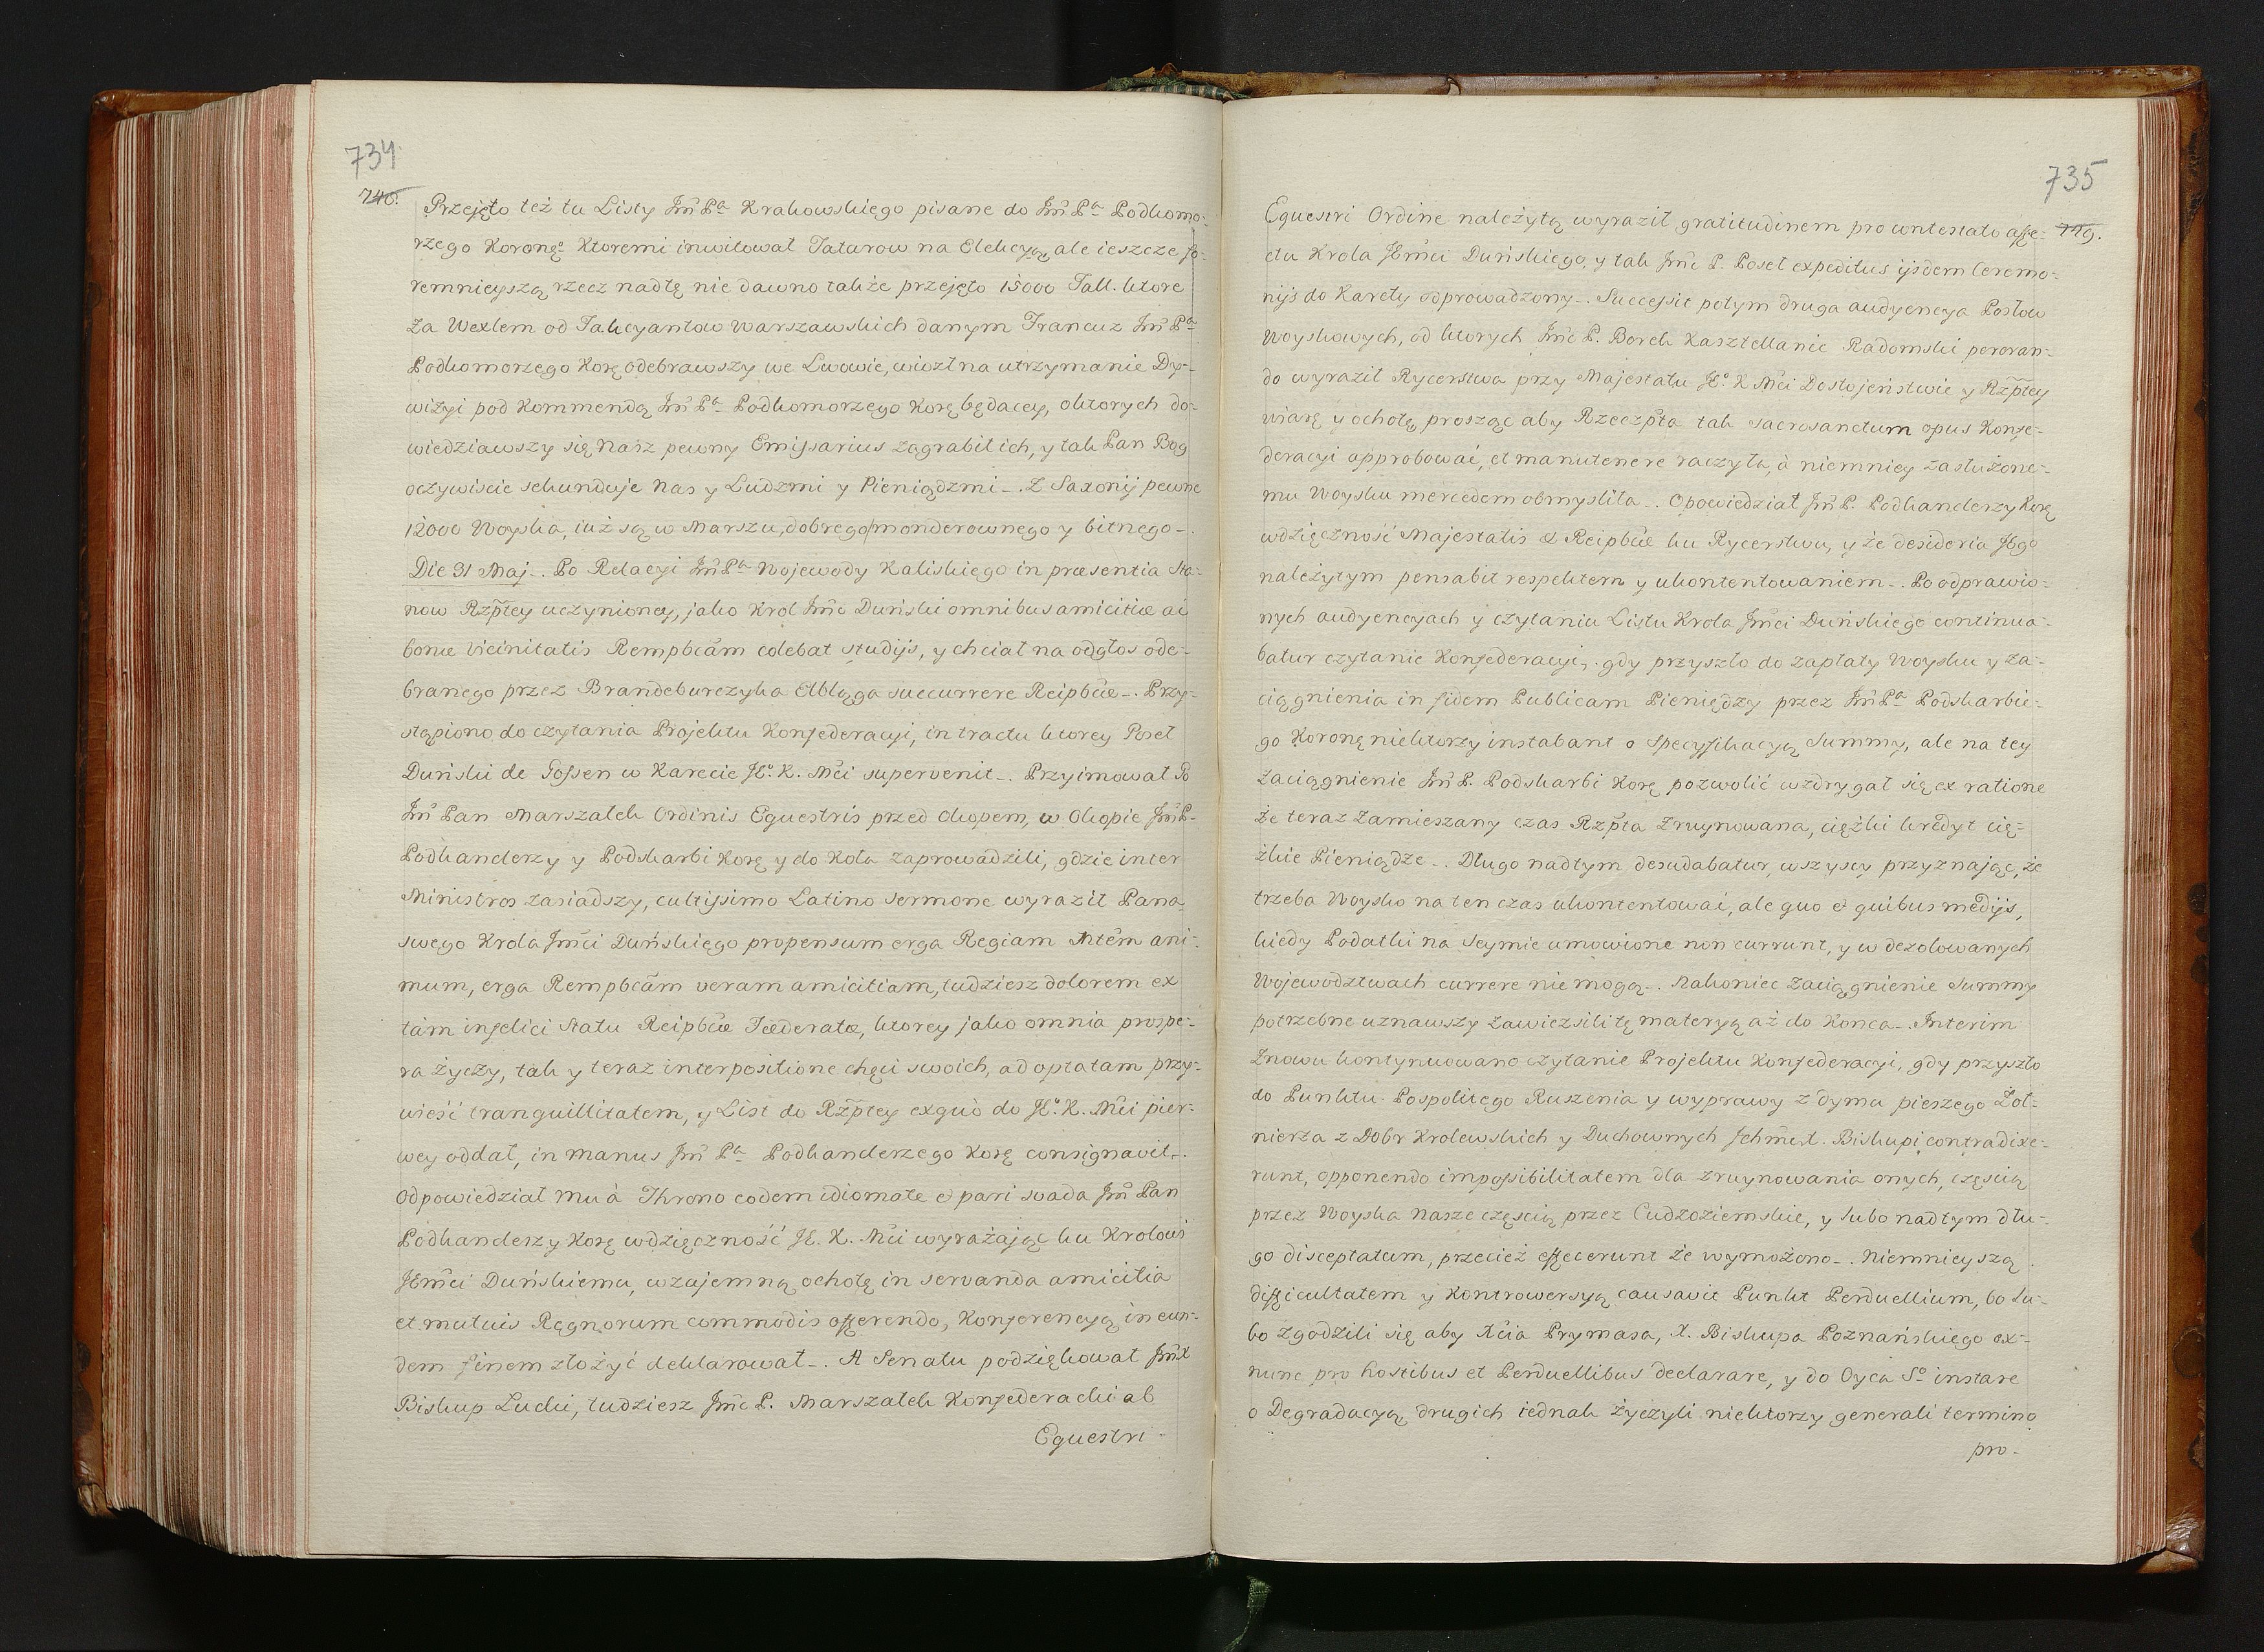 734
746.
Przejęto też tu Listy Jm̃ Pª Krakowskięgo pisane do Jm̃ Pª Podkomo-
rzego Koronęº Ktoremi inwitował Tatarow na Elekcyą, ale ieszcze fo-
remnieyszą rzecz nadtę nie dawno także przejęto 15000 Tall. ktore
za Wexlem od Fakcyantow Warszawskich danym Francuz Jm̃ Pª
Podkomorzego Korę odebrawszy we Lwowie, wiozł na utrzymanie Dy-
wizyi pod Kommendą Jm̃ Pª Podkomorzego Korę będacey, o ktorych do-
wiedziawszy się Nasz pewny Emissarius zagrabił ich, y tak Pan Bog
oczywiscie sekunduje Nas y Ludzmi y Pieniądzmi_. Z Saxonij pewne
12000 Woyska, iuż są w Marszu, dobrego monderownego y bitnego_.
Die 31 Maj_. Po Relacyi Jm̃ Pª Wojewody Kaliskiego in præsentia Sta-
now Rzp̃tey uczynioney, jako Krol Jm̃c Duński omnibus amicitiæ ac
bonæ Vicinitatis Rempbcãm colebat studijs, y chciał na odgłos ode-
branego przez Brandeburczyka Elbląga succurrere Reipbcæ_. Przy-
stąpiono do czytania Projektu Konfederacyi, in tractu ktorey Poseł
Duński de Gossen w Karecie JKº. K. Mc̃i supervenit_. Przyimował Go
Jm̃ Pan Marszałek Ordinis Equestris przed Okopem, w Okopie Jm̃ P.
Podkanclerzy y Podskarbi Korę y do Koła zaprowadzili, gdzie inter
Ministros zasiadszy, cultissimo Latino sermone wyraził Pana
swego Krola Jm̃ci Duńskiego propensum erga Regiam Mtẽm ani-
mum, erga Rempbcãm veram amicitiam, tudziesz dolorem ex
tàm infelici statu Reipbcæ Fœderatæ, ktorey jako omnia prospe-
ra życzy, tak y teraz interpositione chęci swoich, ad optatam przy-
wieść tranquillitatem, y List do Rzp̃tey exquò do JKº. K. Mc̃i pier-
wey oddał, in manus Jm̃ Pª Podkanclerzego Korę consignavit_.
Odpowiedział mu à Throno eodem idiomate et pari svada Jm̃ Pan
Podkanclerzy Korę wdzięczność JK. K. Mc̃i wyrażając ku Krolowi
JEm̃ci Duńskiemu, wzajemną ochotę in servanda amicitia
et mutuis Regnorum commodis offerendo, Konferencyą in eun-
dem finem złożyć deklarował_. A Senatu podziękował Jm̃ X
Biskup Lucki, tudziesz Jm̃c P. Marszałek Konfederacki ab
Equestri
735
749.
Equestri Ordine należytą wyraził gratitudinem pro contestato affe-
ctu Krola JEm̃ci Duńskiego, y tak Jm̃c P. Poseł expeditus ijsdem Ceremo-
nijs do Karety odprowadzony_. Successit potym druga audyencya Posłow
Woyskowych, od ktorych Jm̃c P. Borek Kasztellanic Radomski peroran-
do wyraził Rycerstwa przy Majestatu JKº. K Mc̃i Dostojeństwie y Rzp̃tey
wiarę y ochotę, prosząc aby Rzeczp̃ta tak sacrosanctum opus Konfe-
deracyi approbować, et manutenere raczyła, à niemniey zasłużone-
mu Woysku mercedem obmyśliła_. Opowiedział Jm̃ P. Podkanclerzy Korę
wdzięczność Majestatis & Reipbcæ ku Rycerstwu, y że desideria Jego
należytym pensabit respektem y ukontentowaniem_. Po odprawio-
nych audyencyach y czytaniu Listu Krola Jm̃ci Duńskiego continua-
batur czytanie Konfederacyi, gdy przyszło do zapłaty Woysku y za-
ciągnienia in fidem Publicam Pieniędzy przez Jm̃ Pª Podskarbie-
go Koronę niektorzy instabant o specyfikacyą Summy, ale na tey
zaciągnienie Jm̃ P. Podskarbi Korę pozwolić wzdrygał się ex ratione
że teraz zamieszany czas Rzp̃ta zruynowana, ciężki kredyt cię-
żkie Pieniądze_. Długo nadtym desudabatur, wszyscy przyznając, że
trzeba Woysko na ten czas ukontentować, ale quo et quibus medijs,
kiedy Podatki na Seymie umowione non currunt, y w dezolowanych
Wojewodztwach currere nie mogą_. Nakoniec zaciągnienie Summy
potrzebne uznawszy zawiezsili tę materyą aż do Konca_. Interim
znowu kontynuowano czytanie Projektu Konfederacyi, gdy przyszło
do Punktu Pospolitego Ruszenia y wyprawy z dymu pieszego Żoł-
nierza z Dobr Krolewskich y Duchownych Jchm̃ X. Biskupi contradixe-
runt, opponendo impossibilitatem dla zruynowania onych, częscią
przez Woyska Nasze częscią przez Cudzoziemskie, y lubo nadtym dłu-
go disceptatum, przecież effecerunt że wymożono_. Niemnieyszą
difficultatem y Kontrowersyą causavit Punkt Perduellium, bo lu-
bo zgodzili się aby Xcia Prymasa, X. Biskupa Poznańskiego ex-
nunc pro hostibus et Perduellibus declarare, y do Oyca Sº instare
o Degradacyą, drugich iednak życzyli niektorzy generali termino
pro-